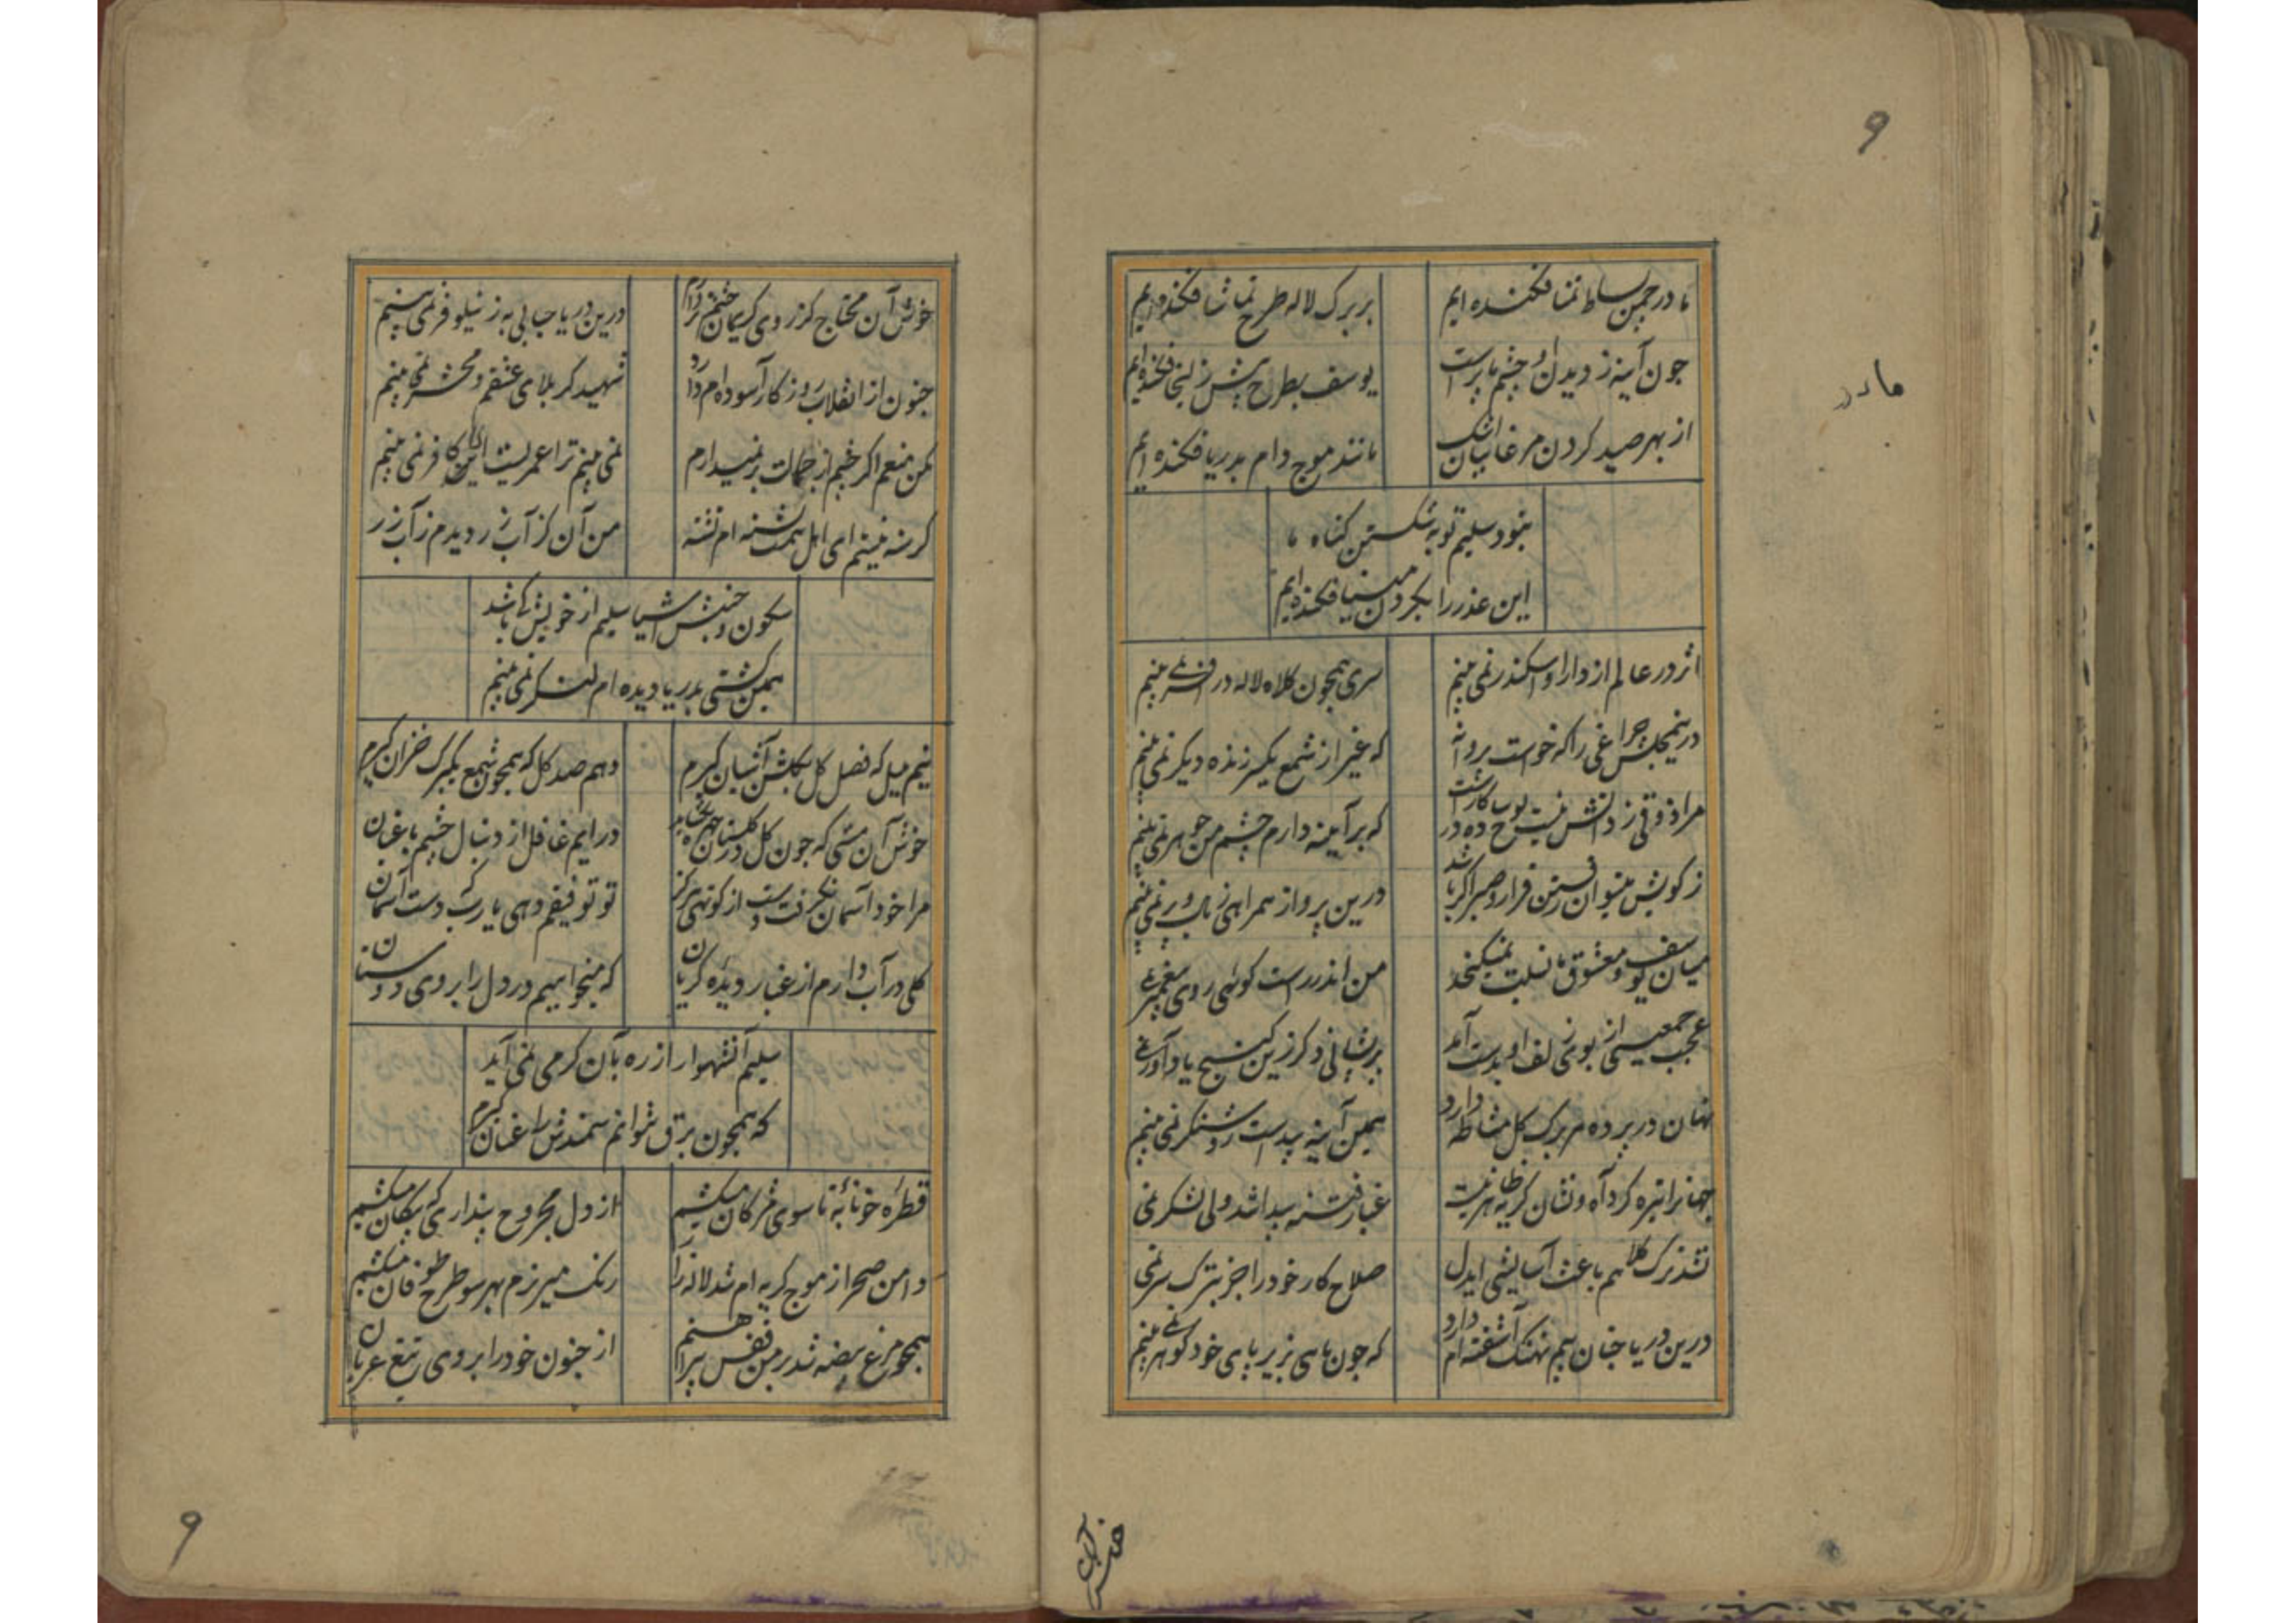 ۹
ما در چمن بساط تمنا فکنده ایم
بر برک لاله طرح تماشا فکنده ایم
چون آینه ز دیدن او چشم ما پرست
یوسف بطرح پیش زلیخا فکنده ایم
از بهر صید کردن مرغابیان اشک
مانند موج دام بدریا فکنده ایم
نبود سلیم توبه شکستن کناه ما
این عذر را بکردن مینا فکنده ایم
مادر
اثر در عالم از دارا و اسکندر نمی بینم
سری همچون کلاه لاله در افسر نمی بینم
درین مجلس چراغی را که خواست پروانه
که غیر از شمع یکسر زنده دیکر نمی بینم
مرا ذوقی ز دانش نیست لوح ساده در کارست
که بر آینه دارم چشم من جوهر نمی بینم
ز کویش میتوان رفتن قرار و صبر اکر باشد
درین پرواز همراهی ز بال و پر نمی بینم
میان یوسف و معشوق ما نسبت نمیکنجد
من اندر راست کوئی روی پیغمبر نمی
عجب جمعیتی از بوی زلف او بدست آمد
پریشانی دکر زین نسخ یاد آور نمی
نهان در پرده هر برک کل مشاطه دارد
همین آینه پیداست روشنکر نمی بینم
جهانرا تیره کرد آه و نشان کریه ظاهر نیست
غبار فتنه پیدا شد ولی لشکر نمی
نشد ترک کلاهم باعث آسایشی ایدل
صلاح کار خود را جز بترک سر نمی
درین دریا چنان بیم نهنک آشفته ام دارد
که چون ماهی بزیر پای خود کوهر نمی بینم
خوش آن
خوش آن محتاج کز روی کریمان چشم تر دارم
درین دریا حبابی به ز نیلوفر نمی بینم
جنون از انقلاب روزکار آسوده ام دارد
شهید کربلای عشقم و محشر نمی بینم
مکن منعم اکر چشم از جمالت بر نمیدارم
نمی بینم ترا عمریست ای کافر نمی بینم
کرسنه نیستم ای اهل همت تشنه ام تشنه
من آن کز آب زر دیدم ز آب زر
سکون و جنبش اشیا سلیم از خویش کی باشد
همین کشتی بدریا دیده ام لنکر نمی بینم
نیم بلبل که فصل کل بکلشن آشیان کیرم
دهم صد کل که همچون شمع یکبرک خزان کیرم
خوش آن مستی که چون کل در کلستان
در ایم غافل از دنبال چشم باغبان
مرا خود آسمان نکرفت دست از کوتهی هرکز
تو توفیقم دهی یا رب که دست آسمان
کلی در آب دارم از غبار دیده کریان
که میخواهم در دل را بروی دوستان
سلیم آن شهسوار از ره بآن کرمی نمی آید
که همچون برق بتوانم سمندش را عنان کیرم
قطره خونابه تا سوی مژکان میکشیم
از دل مجروح پنداری که پیکان میکشیم
دامن صحرا ز موج کریه ام شد لاله زار
رنک میریزم بهر سو طرح طوفان میکشیم
همچو مرغ بیضه شد بر من قفس پیراهنم
از جنون خود را بروی تیغ عریان
۹